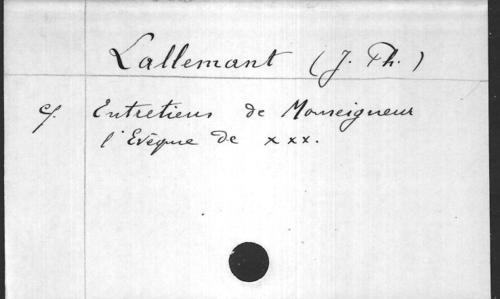 Lallemant (J. Th.)
cf. Entretiens de Monseigneur
l'Evêque de xxx.